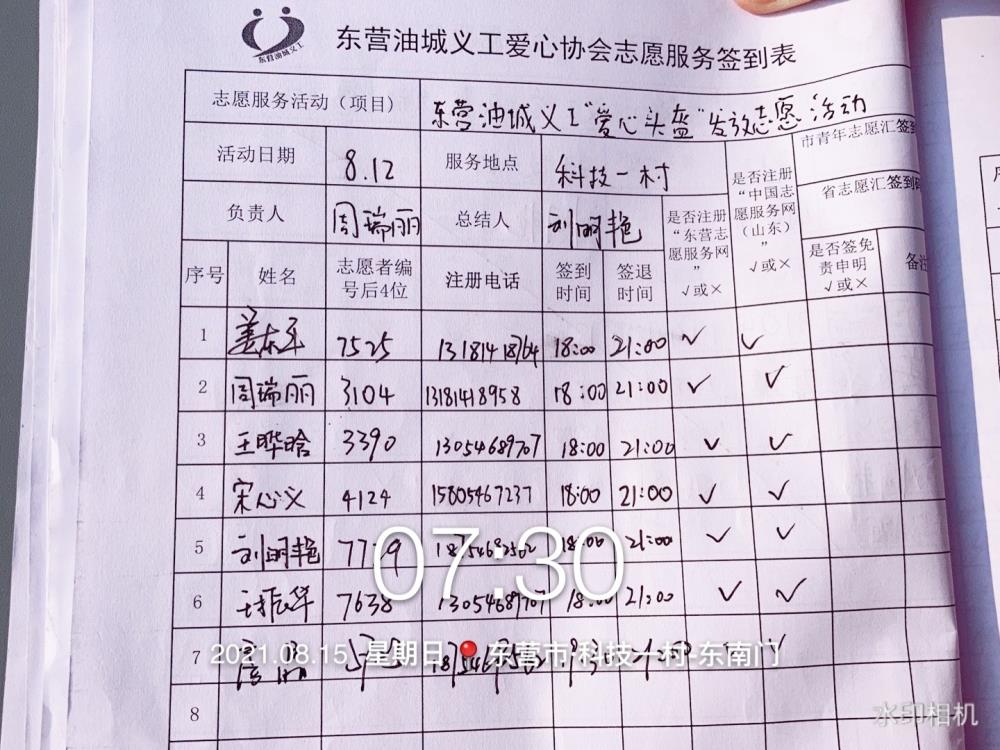 东营油城义工
东营油城义工爱心协会志愿服务签到表
志愿服务活动（项目） 东营油城义工“爱心头盔”发放志愿活动
活动日期 8.12 服务地点 科技一村 市青年志愿汇签到
负责人 周瑞丽 总结人 刘明艳 是否注册“东营志愿服务网” √或× 是否注册“中国志愿服务网（山东）” √或× 省志愿汇签到码
序号 姓名 志愿者编号后4位 注册电话 签到时间 签退时间 是否签免责申明 √或× 备注
1 姜东平 7525 13181418764 18:00 21:00 √ √
2 周瑞丽 3104 13181418958 18:00 21:00 √ √
3 王晔晗 3390 13054689707 18:00 21:00 √ √
4 宋心义 4124 15805467237 18:00 21:00 √ √
5 刘明艳 18:00 21:00 √ √
6 7638 13054689707 18:00 21:00 √ √
7
8
07:30
2021.08.15 星期日 东营市·科技一村-东南门
水印相机